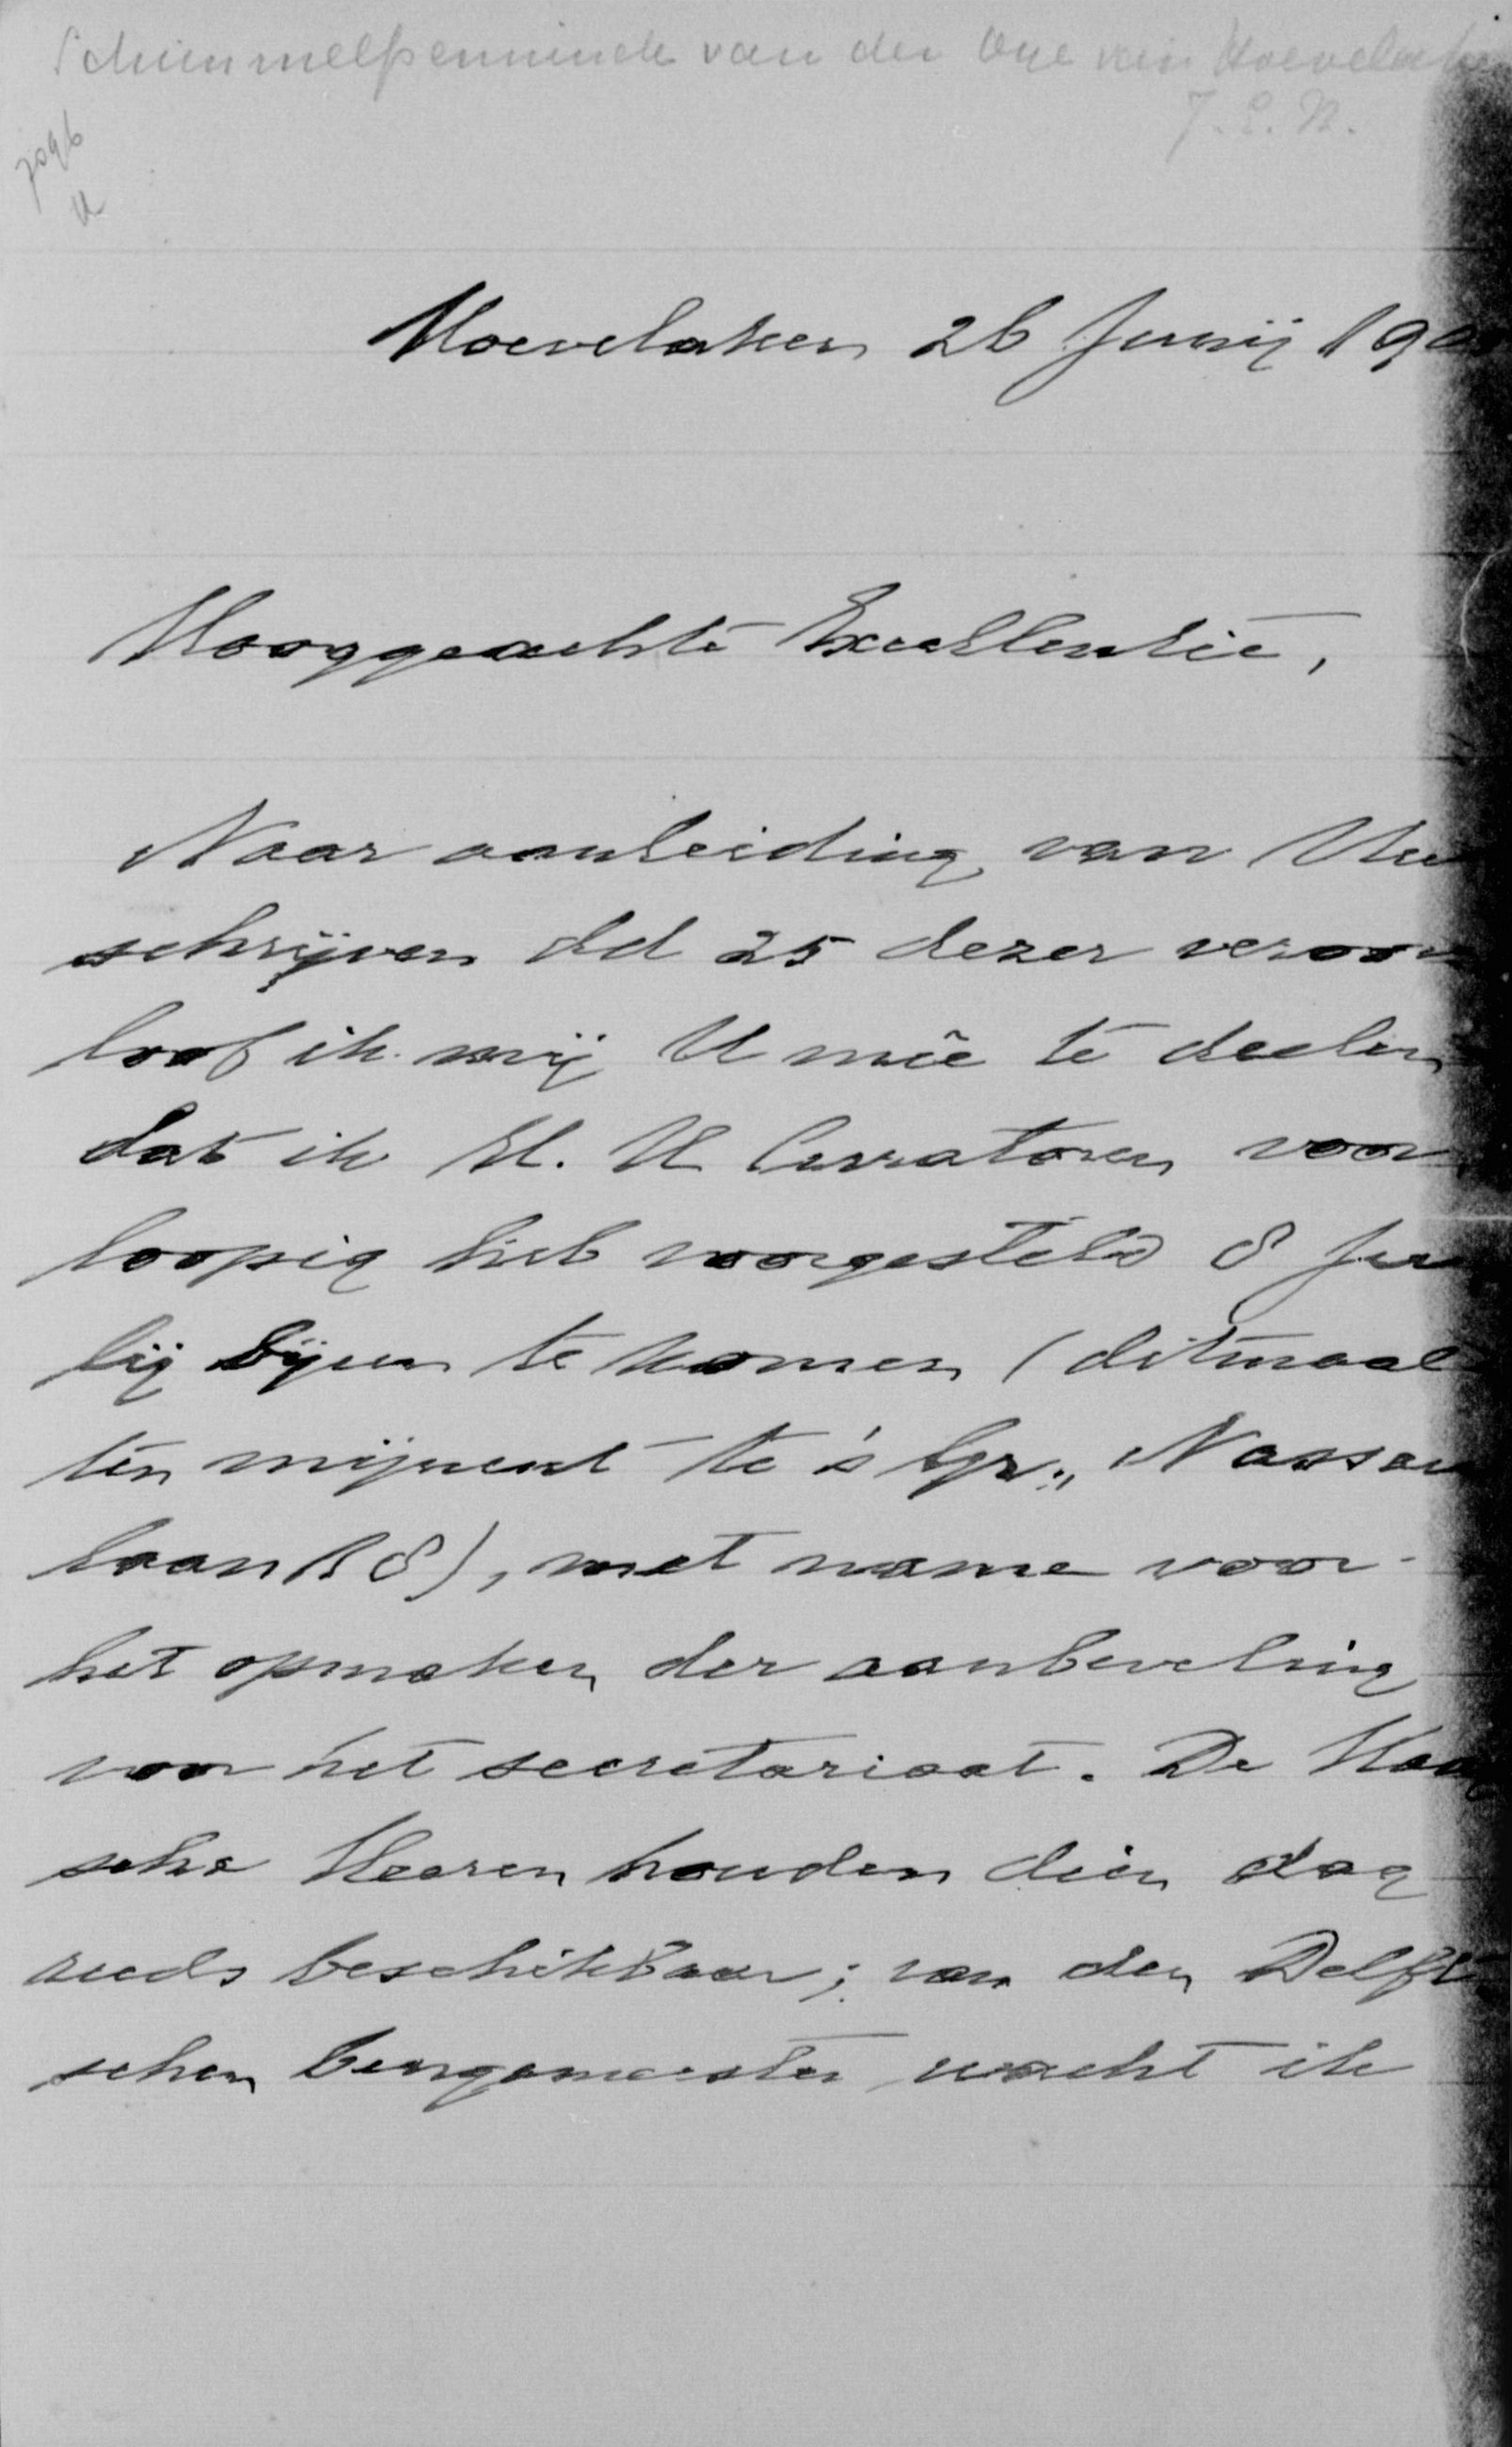 Schimmelpenninck van der Oye van Hoevelaken
J. E. N.
7096
Hoevelaken 26 Junij 190
Hooggeachte Excellentie,
Naar aanleiding van Uw
schrijven dd 25 dezer veroor
loof ik mij U meê te deelen
dat ik H. H Curatoren voor
loopig heb voorgesteld 8 Ju
lij bijeen te komen (ditmaal
ten mijnent te 's Gr., Nassau
laan 18), met name voor
het opmaken der aanbeveling
voor het secretariaat. De Haag
sche Heeren houden dien dag
reeds beschikbaar; van den Delft
schen burgemeester wacht ik